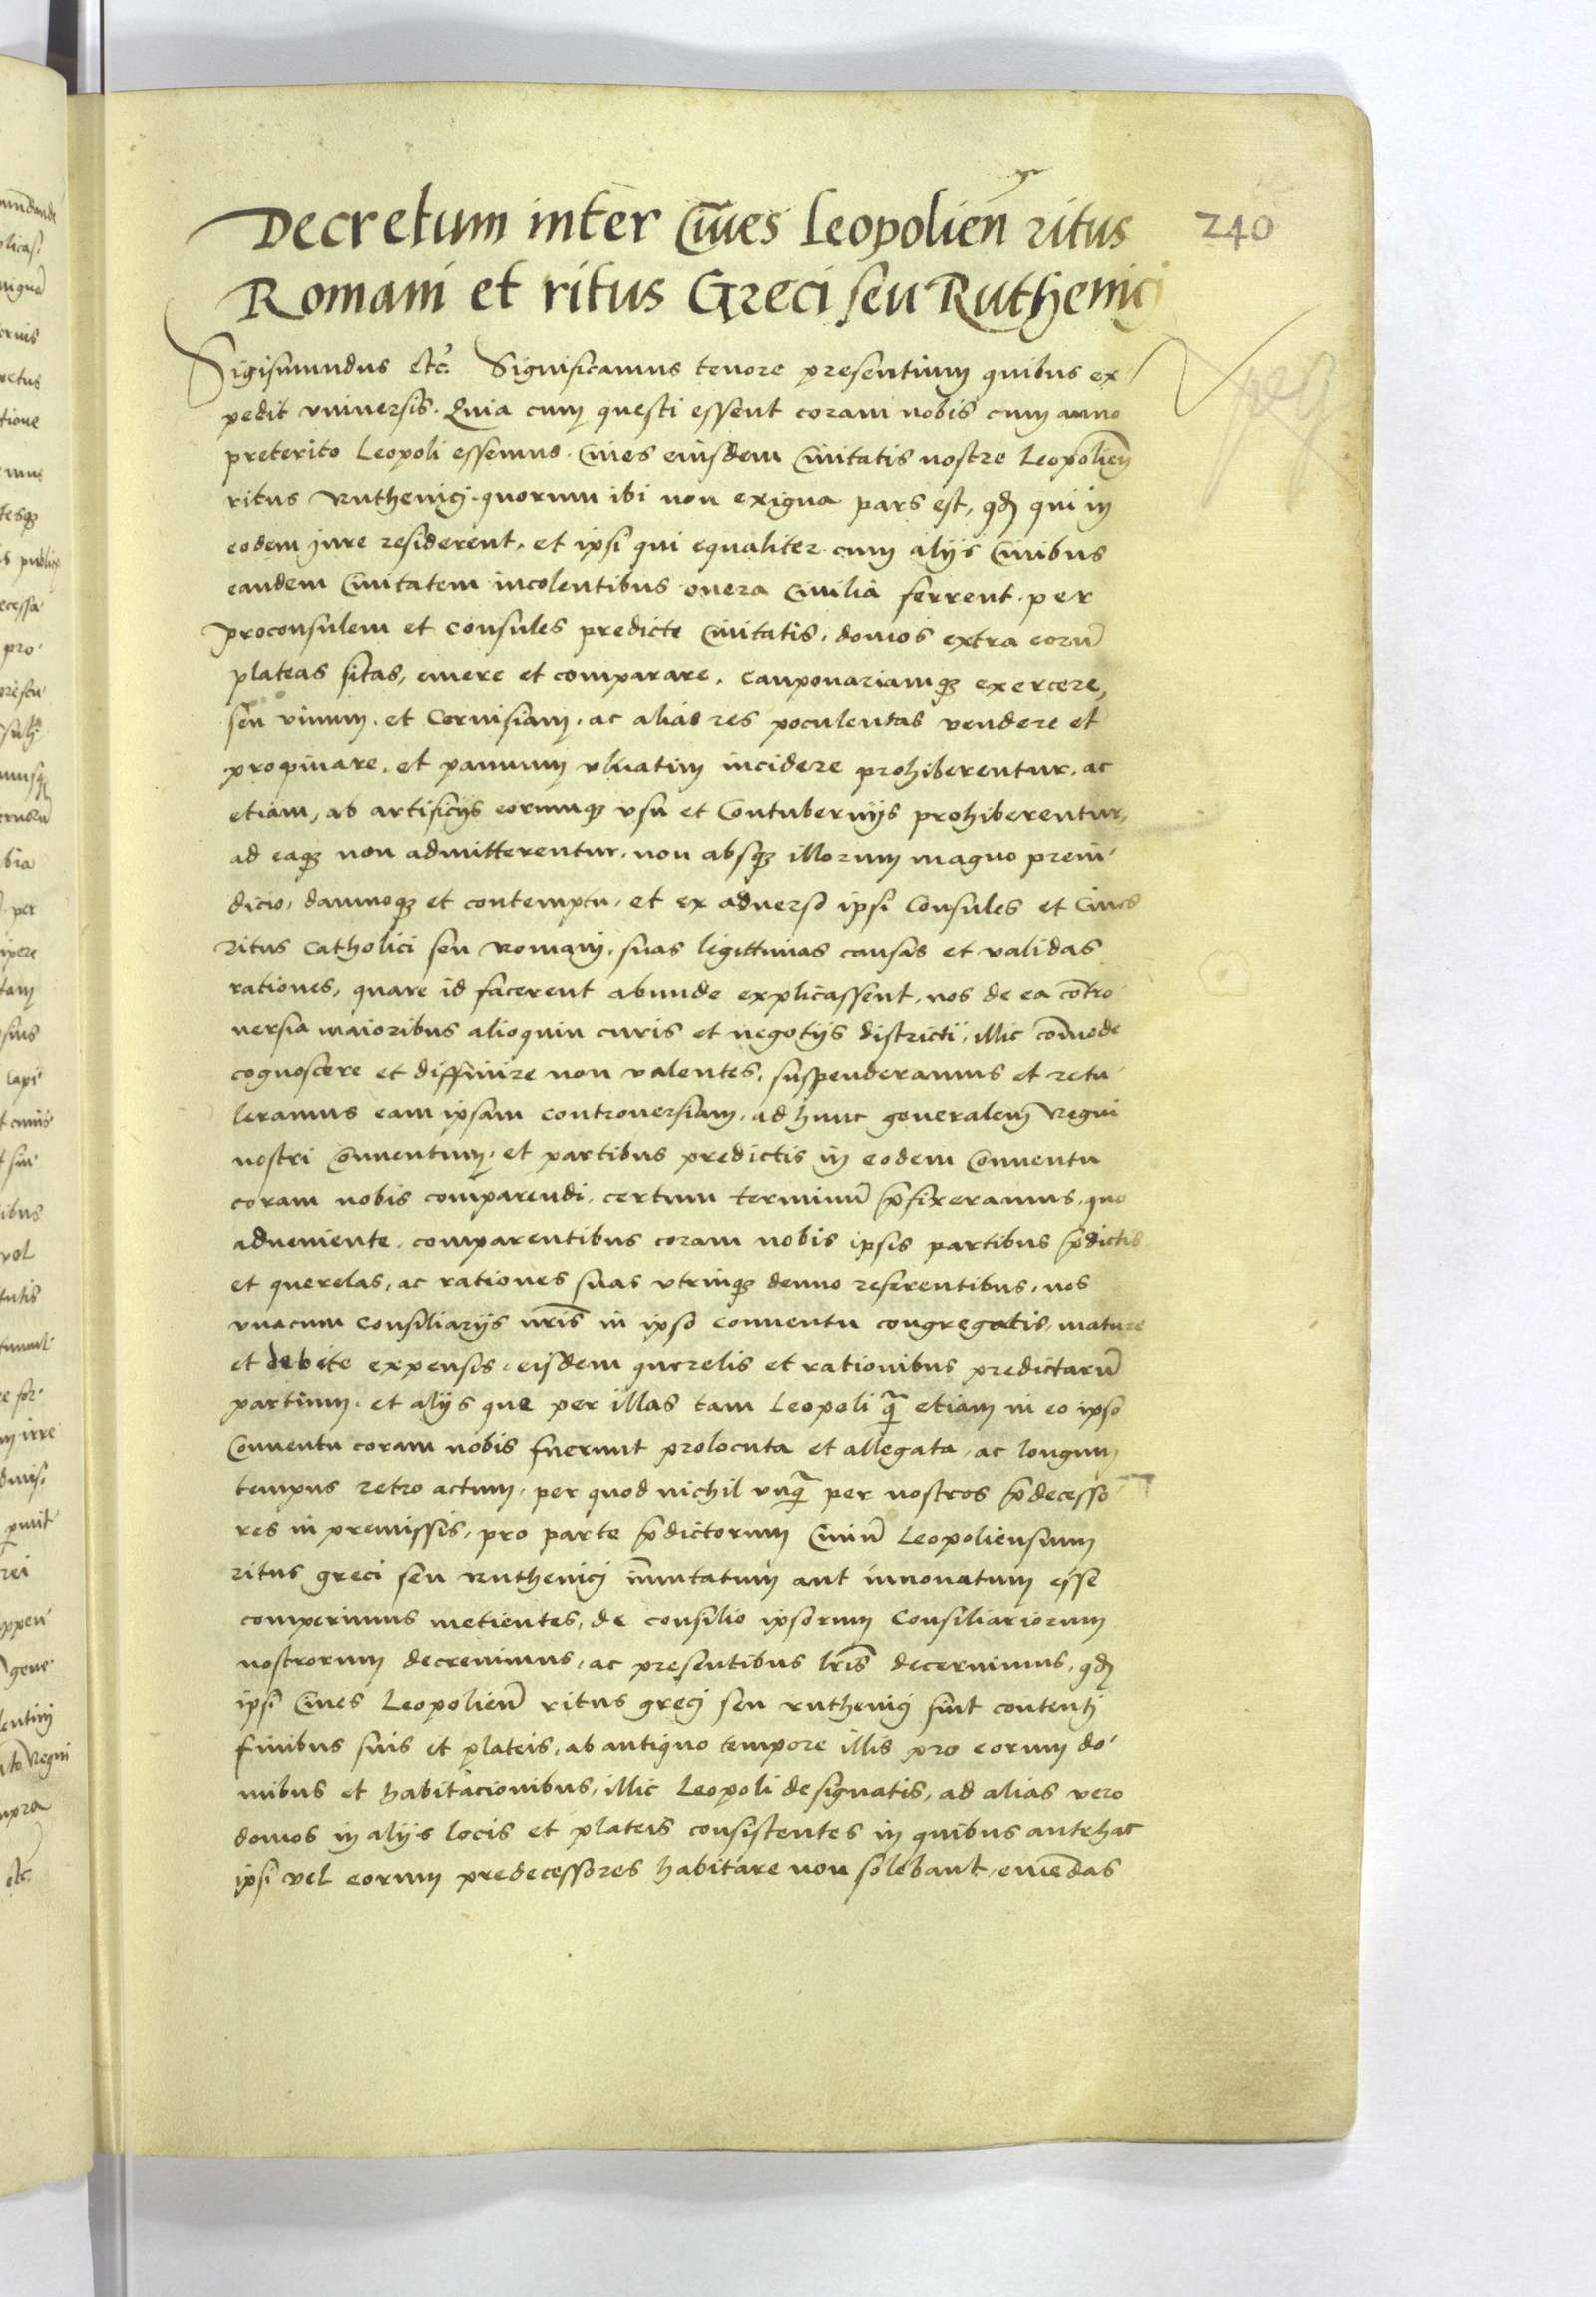 240
Decretum inter Ciues Leopolien̄ ritus
Romani et ritus Greci seu Ruthenicj
Sigismundus etc. Significamus tenore presentium quibus ex
pedit vniuersis. Quia cum questi essent coram nobis cum anno
preterito Leopoli essemus. Ciues eiusdem Ciuitatis nostre Leopolien̄
ritus Ruthenicj. quorum ibi non exigua pars est, qd qui in
eodem jure residerent, et ipsi qui equaliter cum alijs Ciuibus
eandem Ciuitatem incolentibus onera Ciuilia ferrent. per
proconsulem et Consules predicte Ciuitatis. domos extra eorū
plateas sitas, emere et comparare. cauponariamqʒ exercere,
seu vinum. et Ceruisiam. ac alias res poculentas vendere et
propinare. et pannum vlnatim incidere prohiberentur. ac
etiam, ab artificijs eorumqʒ vsu et Contubernijs prohiberentur,
ad eaqʒ non admitterentur. non absqʒ illorum magno preiu
dicio, damnoqʒ et contemptu, et ex aduerso ipsi Consules et Ciues
ritus Catholici seu Romani. suas ligittimas causas et validas
rationes, quare id facerent abunde explicassent. nos de ea cōtro
uersia maioribus alioquin curis et negotijs districti, illic cōmode
cognoscere et diffinire non valentes. suspenderamus et retu
leramus eam ipsam controuersiam. ad hunc generalem Regni
nostri Conuentum. et partibus predictis in eodem Conuentu
coram nobis comparendi. certum terminū p̄fixeramus. quo
adueniente. comparentibus coram nobis ipsis partibus p̄dictis
et querelas, ac rationes suas vtrinqʒ denuo referentibus, nos
vnacum Consiliarijs nr̄is in ipso conuentu congregatis, mature
et debite expensis. eisdem querelis et rationibus predictarū
partium. et alijs que per illas tam Leopoli q̄ etiam in eo ipso
Conuentu coram nobis fuerunt prolocuta et allegata, ac longum
tempus retro actum. per quod nichil vnq̄ per nostros p̄decesso
res in premissis, pro parte p̄dictorum Ciuiū Leopoliensium
ritus greci seu Ruthenicj īmutatum aut innouatum esse
comperimus metientes, de consilio ipsorum Consiliariorum
nostrorum decreuimus, ac presentibus lr̄is decernimus, qd
ipsi Ciues Leopolien̄ ritus grecj seu ruthenicj sint contentj
finibus suis et plateis, ab antiquo tempore illis pro eorum do
mibus et habitacionibus, illic Leopoli designatis, ad alias vero
domos in alijs locis et plateis consistentes in quibus antehac
ipsi vel eorum predecessores habitare non solebant, emēdas